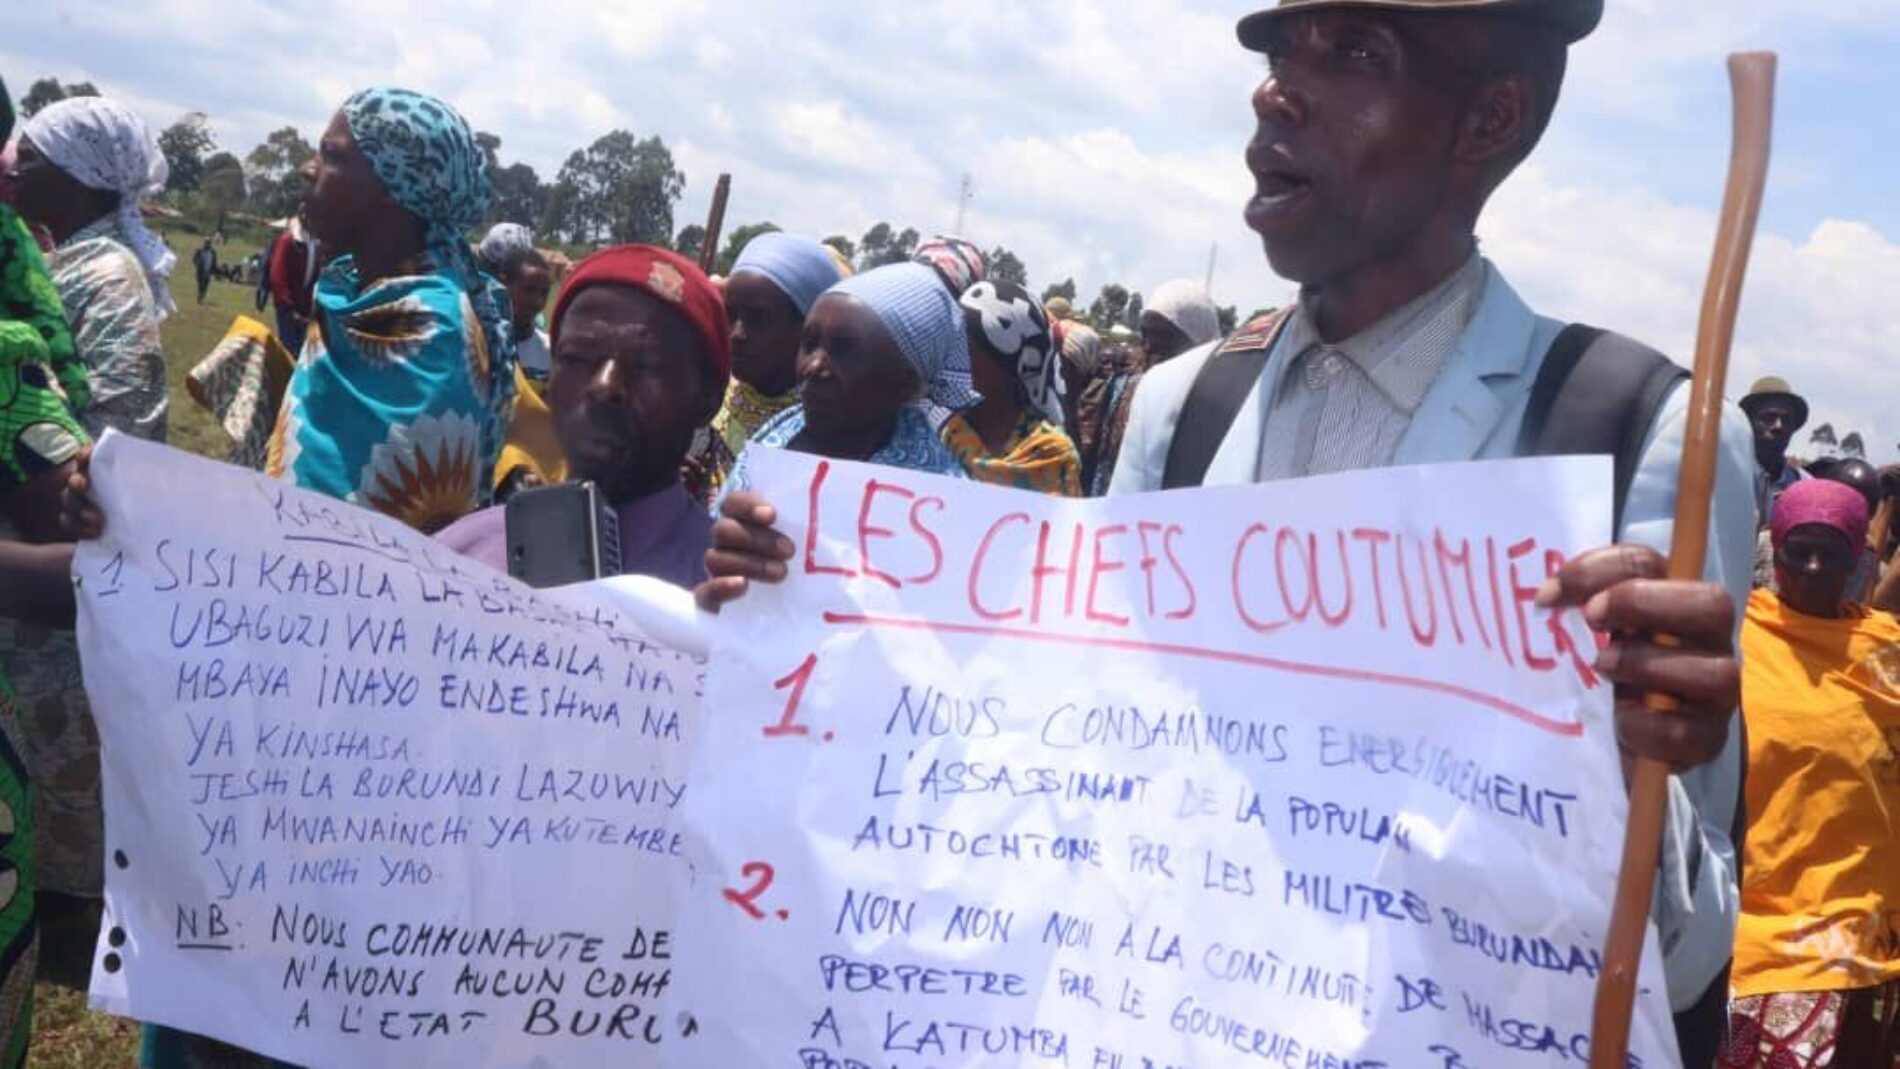 KABILA
1. SISI KABILA LA
UBAGUZI WA MAKABILA NA
MBAYA INAYO ENDESHWA NA
YA KINSHASA.
JESHI LA BURUNDI LAZUWIY
YA MWANAINCHI YA KUTEMBE
YA INCHI YAO
NB: NOUS COMMUNAUTE DE
N'AVONS AUCUN
A L'ETAT BURU
LES CHEFS COUTUMIER
1. NOUS CONDAMNONS
L'ASSASSINANT DE LA POPULA
AUTOCHTONE PAR LES MILITRES BURUNDAI
2. NON NON NON A LA CONTINUITE DE MASSAC
PERPETRE PAR LE GOUVERNEMENT
A KATUMBA EN